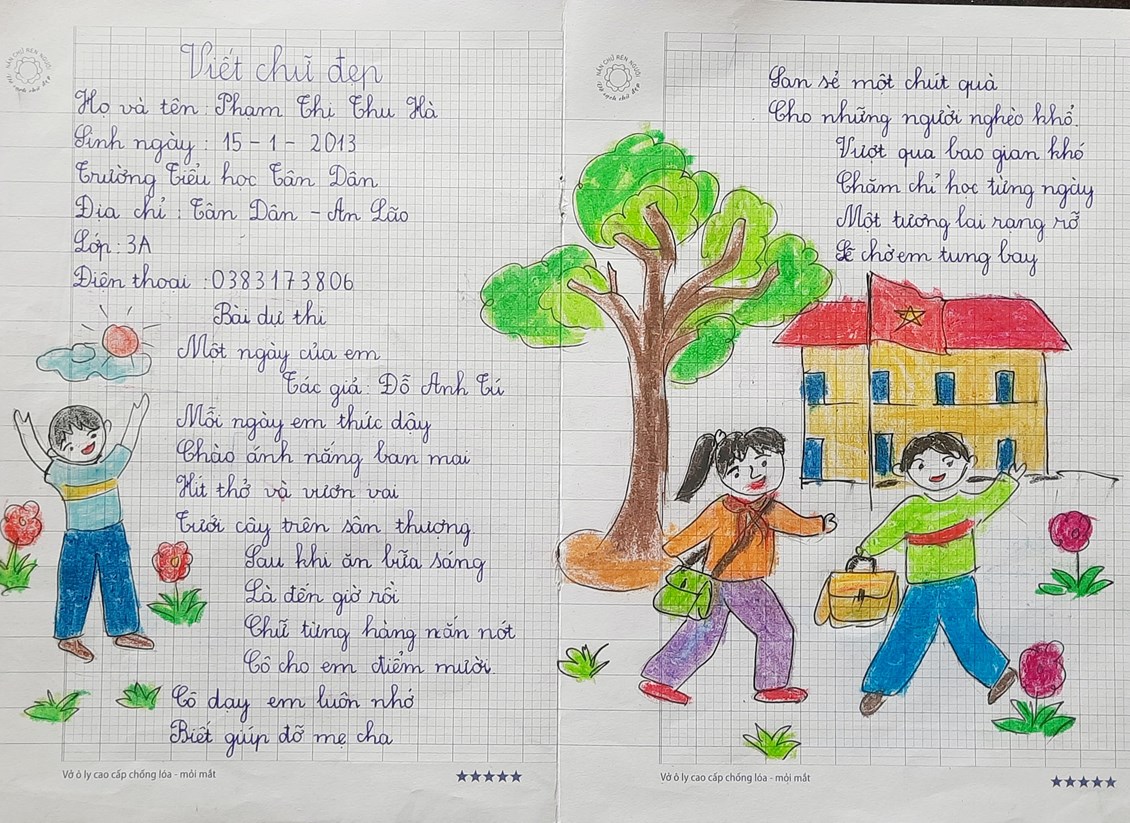 Viết chữ đẹp
Họ và tên: Phạm Thị Thu Hà
Sinh ngày: 15 - 1 - 2013
Trường Tiểu học Tân Dân
Địa chỉ: Tân Dân - An Lão
Lớp: 3A
Điện thoại: 0383173806
Bài dự thi
Một ngày của em
Tác giả: Đỗ Anh Tú
Mỗi ngày em thức dậy
Chào ánh nắng ban mai
Hít thở và vươn vai
Tưới cây trên sân thượng
Sau khi ăn bữa sáng
Là đến giờ rồi
Chữ từng hàng nắn nót
Cô cho em điểm mười.
Cô dạy em luôn nhớ
Biết giúp đỡ mẹ cha
Vở ô ly cao cấp chống lóa - mỏi mắt
NẮN CHỮ RÈN NGƯỜI
San sẻ một chút quà
Cho những người nghèo khổ.
Vượt qua bao gian khó
Chăm chỉ học từng ngày
Một tương lai rạng rỡ
Sẽ chờ em tung bay
Vở ô ly cao cấp chống lóa - mỏi mắt